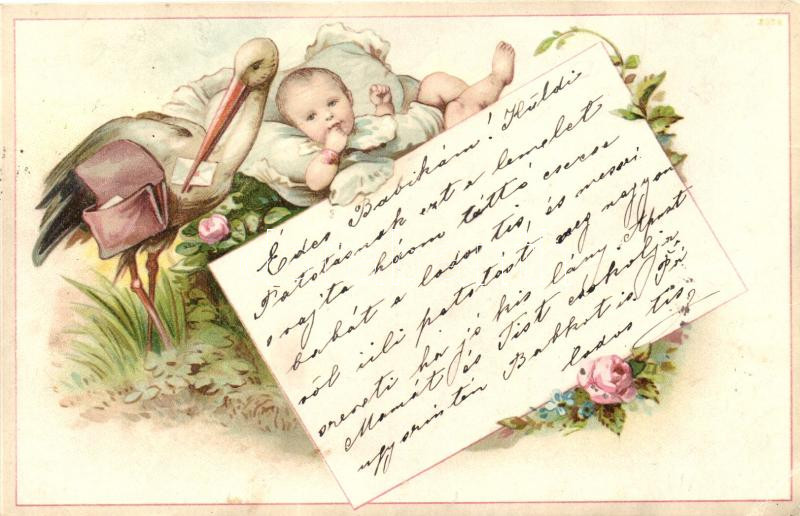 Édes Babikám! Küldi
Patotásnak ezt a lemelet
rajta három tattó csecse
babát a lados tis, és messzi
ről üli patotást meg nagyon
szereti ha jó kis lány Apust
Mamát és Tist csókolja
ugyszintén Babkot is
lados tis